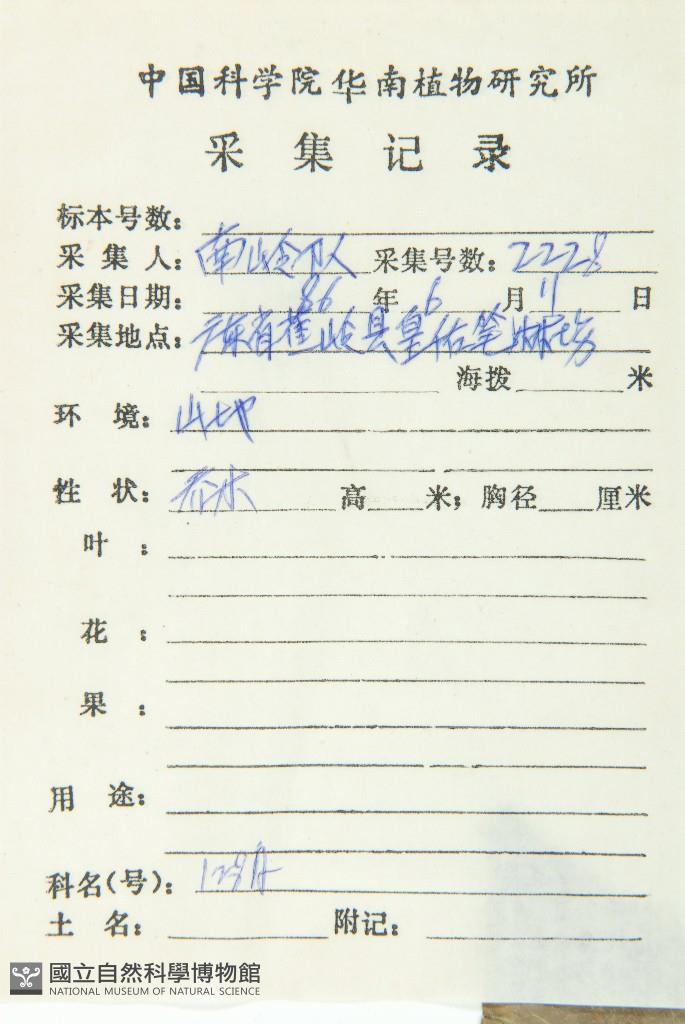 中国科学院华南植物研究所
采集记录
标本号数：
采集人：南岭队 采集号数：2228
采集日期：86年6月11日
采集地点：广东省蕉岭县皇佑笔
海拨 米
环境：山地
性状：乔木 高 米；胸径 厘米
叶：
花：
果：
用途：
科名(号)：
土名： 附记：
國立自然科學博物館
NATIONAL MUSEUM OF NATURAL SCIENCE